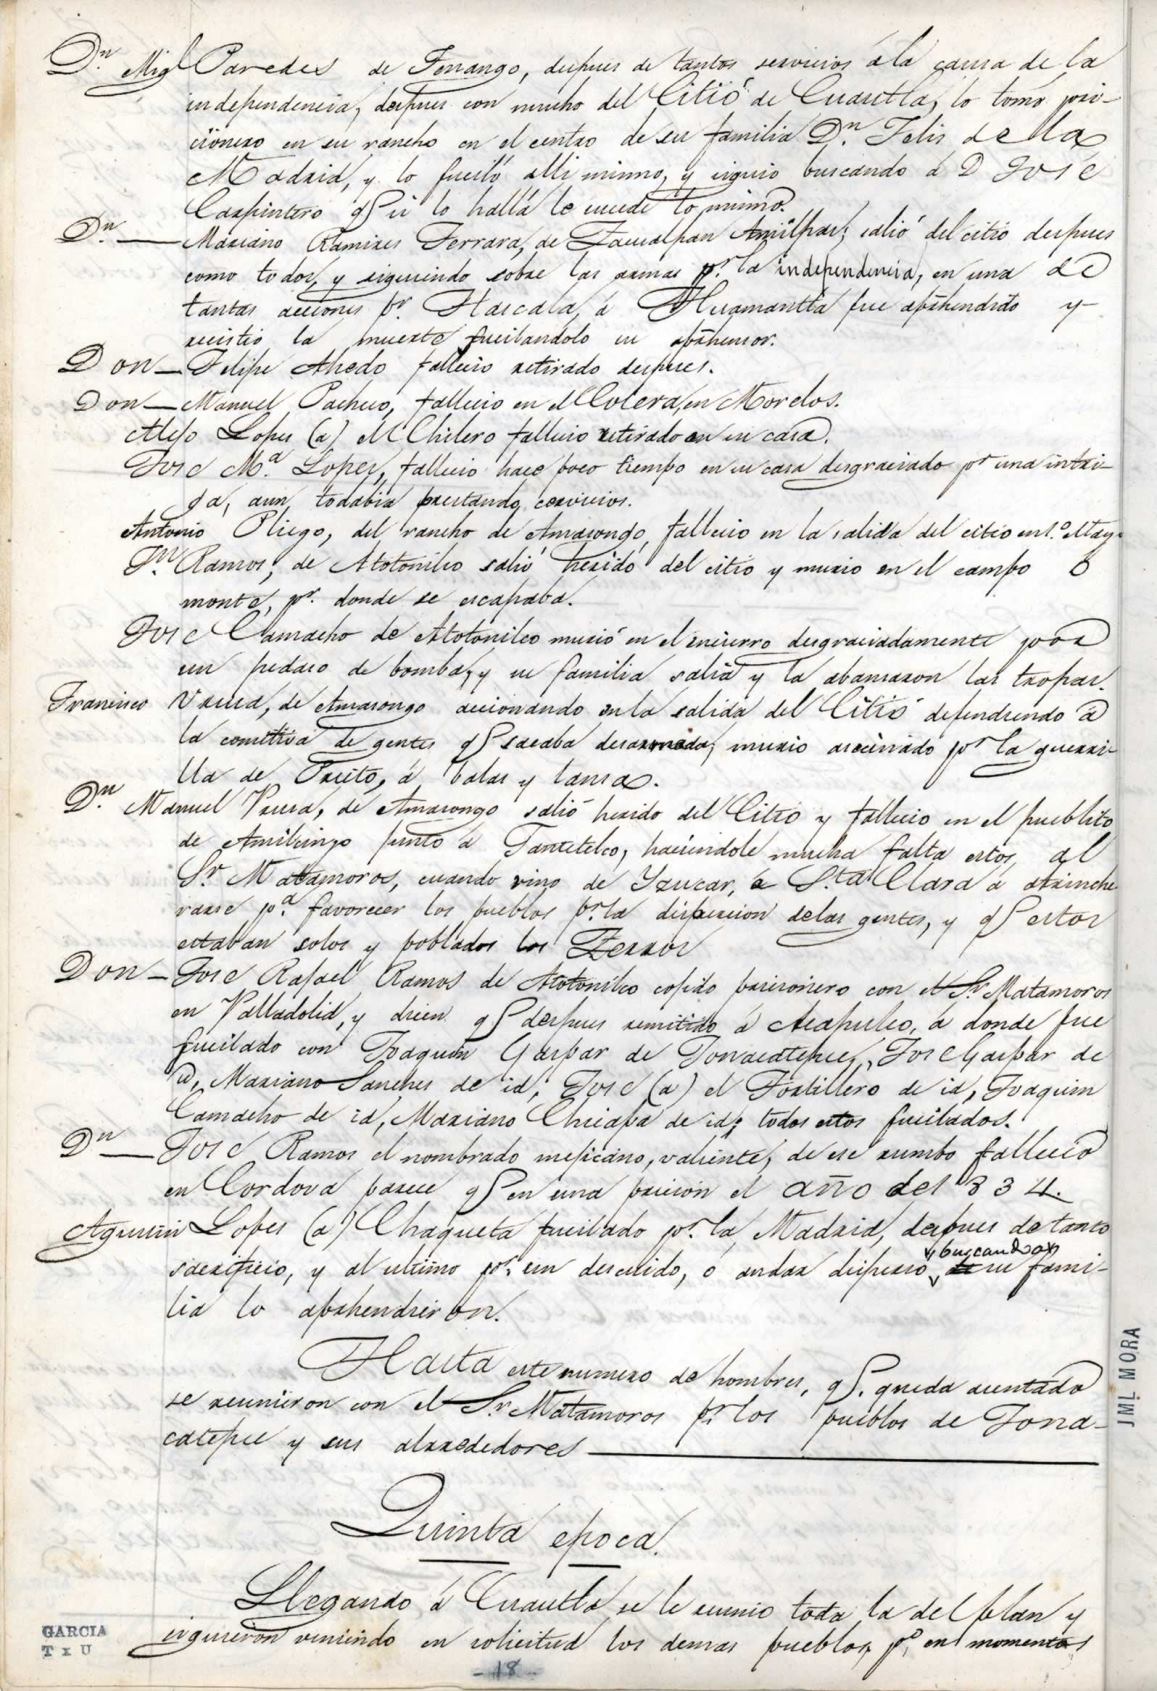 Dn. Migl Paredes de Tenango, despues de tantos servicios á la causa de la
independencia, despues con mucho del Citio de Cuautla, lo tomo pri-
cionero en su rancho en el centro de su familia Dn. Felis de la
Madrid, y lo fusiló alli mismo, y siguio buscando á D José
Carpintero qe si lo halla le sucede lo mismo.
Dn.— Mariano Ramires Ferrara, de Zacualpan Amilpas; salió del citio despues
como todos, y siguiendo sobre las armas pr. la independencia, en una de
tantas acciones pr. Tlascala, á Huamantla fue aprehendido y
recistio la muerte fucilandolo su aprehensor.
Don— Felipe Ahedo fallecio retirado despues.
Don— Manuel Pacheco, fallecio en el Colera, en Morelos.
Alejo Lopes (a) el Chilero fallecio retirado en su casa.
José Ma. Lopes, fallecio hace poco tiempo en su casa desgraciado pr. una intri-
ga, aun todabia prestando servicios.
Antonio Pliego, del rancho de Amasongo, fallecio en la salida del citio en 1.º Mayo
Jn. Ramos, de Atotonilco salió herido del citio y murio en el campo ó
monte, pr. donde se escapaba.
José Camacho de Atotonilco murió en el encierro desgraciadamente por
un pedaso de bomba, y su familia salia y la abansaron las tropas.
Francisco Varela, de Amasongo accionando en la salida del Citio defendiendo á
la comitiva de gentes qe sacaba desarmada, murio acecinado pr. la guerri-
lla de Prieto, á balas y lansa.
Dn. Manuel Varela, de Amasongo salió herido del Citio y fallecio en el pueblito
de Amilcingo junto á Jantetelco, haciendole mucha falta estos, al
Sr. Matamoros, cuando vino de Yzucar, á Sta. Clara á atrinche
rarse pa. favorecer los pueblos pr. la dispercion de las gentes, y qe estos
estaban solos y poblados los Zerros
Don— José Rafael Ramos de Atotonilco cojido pricionero con el Sr. Matamoros
en Valladolid, y dicen qe despues remitido á Acapulco, á donde fue
fucilado con Joaquin Gaspar de Jonacatepec, José Gaspar de
id, Mariano Sanches de id, José (a) el Tortillero de id, Joaquin
Camacho de id, Mariano Chicapa de id; todos estos fucilados.
Dn— José Ramos el nombrado mejicano, valiente, de ese rumbo fallecio
en Cordova parece qe en una pricion el año del 834.
Agustin Lopes (a) Chaqueta fucilado pr. la Madrid, despues de tanto
sacrificio, y al ultimo pr. un descuido, ó andar disperso
buscando a
su fami-
lia lo aprehendieron.
Hasta este numero de hombres, qe. queda sentado
se reunieron con el Sr. Matamoros pr. los pueblos de Jona-
catepec y sus alrrededores
Quinta epoca.
Llegando á Cuautla se le reunio toda la del plan y
siguieron veniendo en solicitud los demas pueblos, po. en momentos
18
GARCIA
T x U
JML MORA